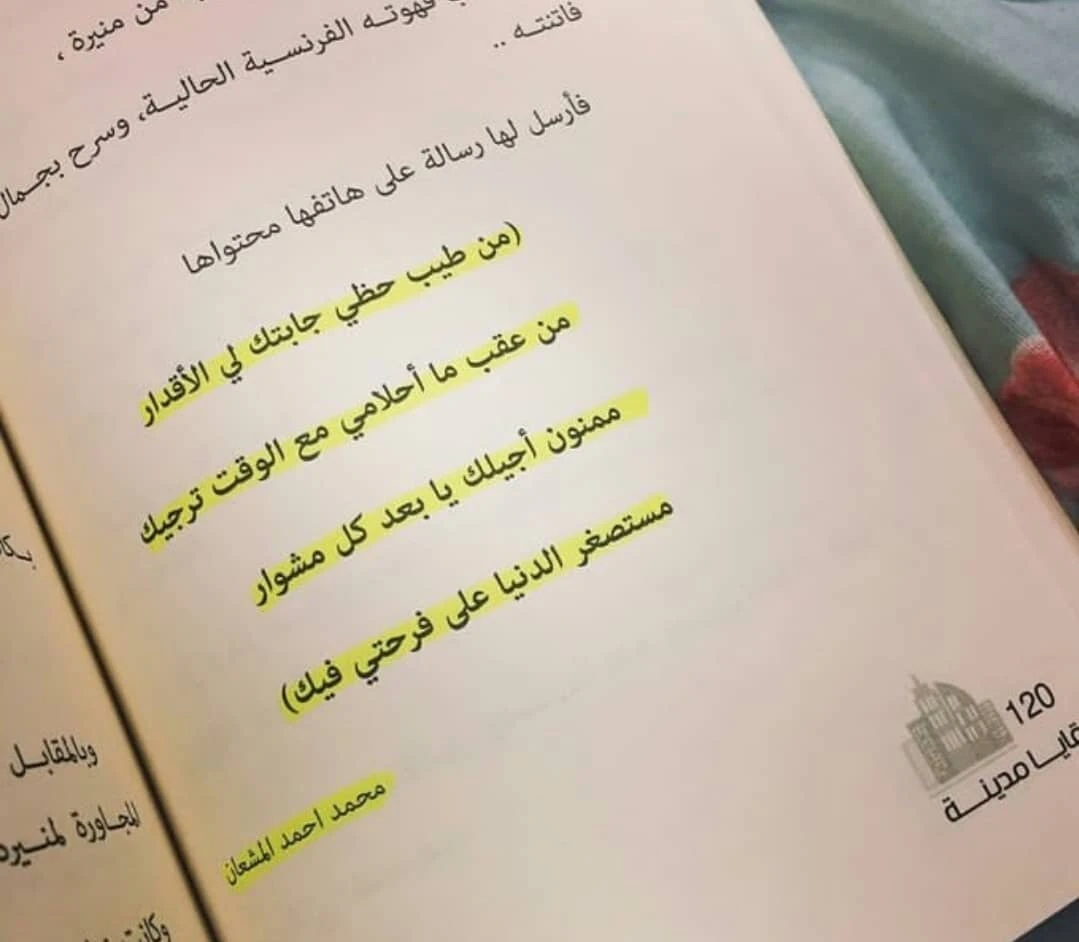 من منيرة ،
قهوته الفرنسية الحالية، وسرح بجمال
فاتنته ..
فأرسل لها رسالة على هاتفها محتواها
(من طيب حظي جابتك لي الأقدار
من عقب ما أحلامي مع الوقت ترجيك
ممنون أجيلك يا بعد كل مشوار
مستصغر الدنيا على فرحتي فيك)
محمد احمد المشعان
120
مدينة
وبالمقابل
المجاورة لمنيرة
وكانت